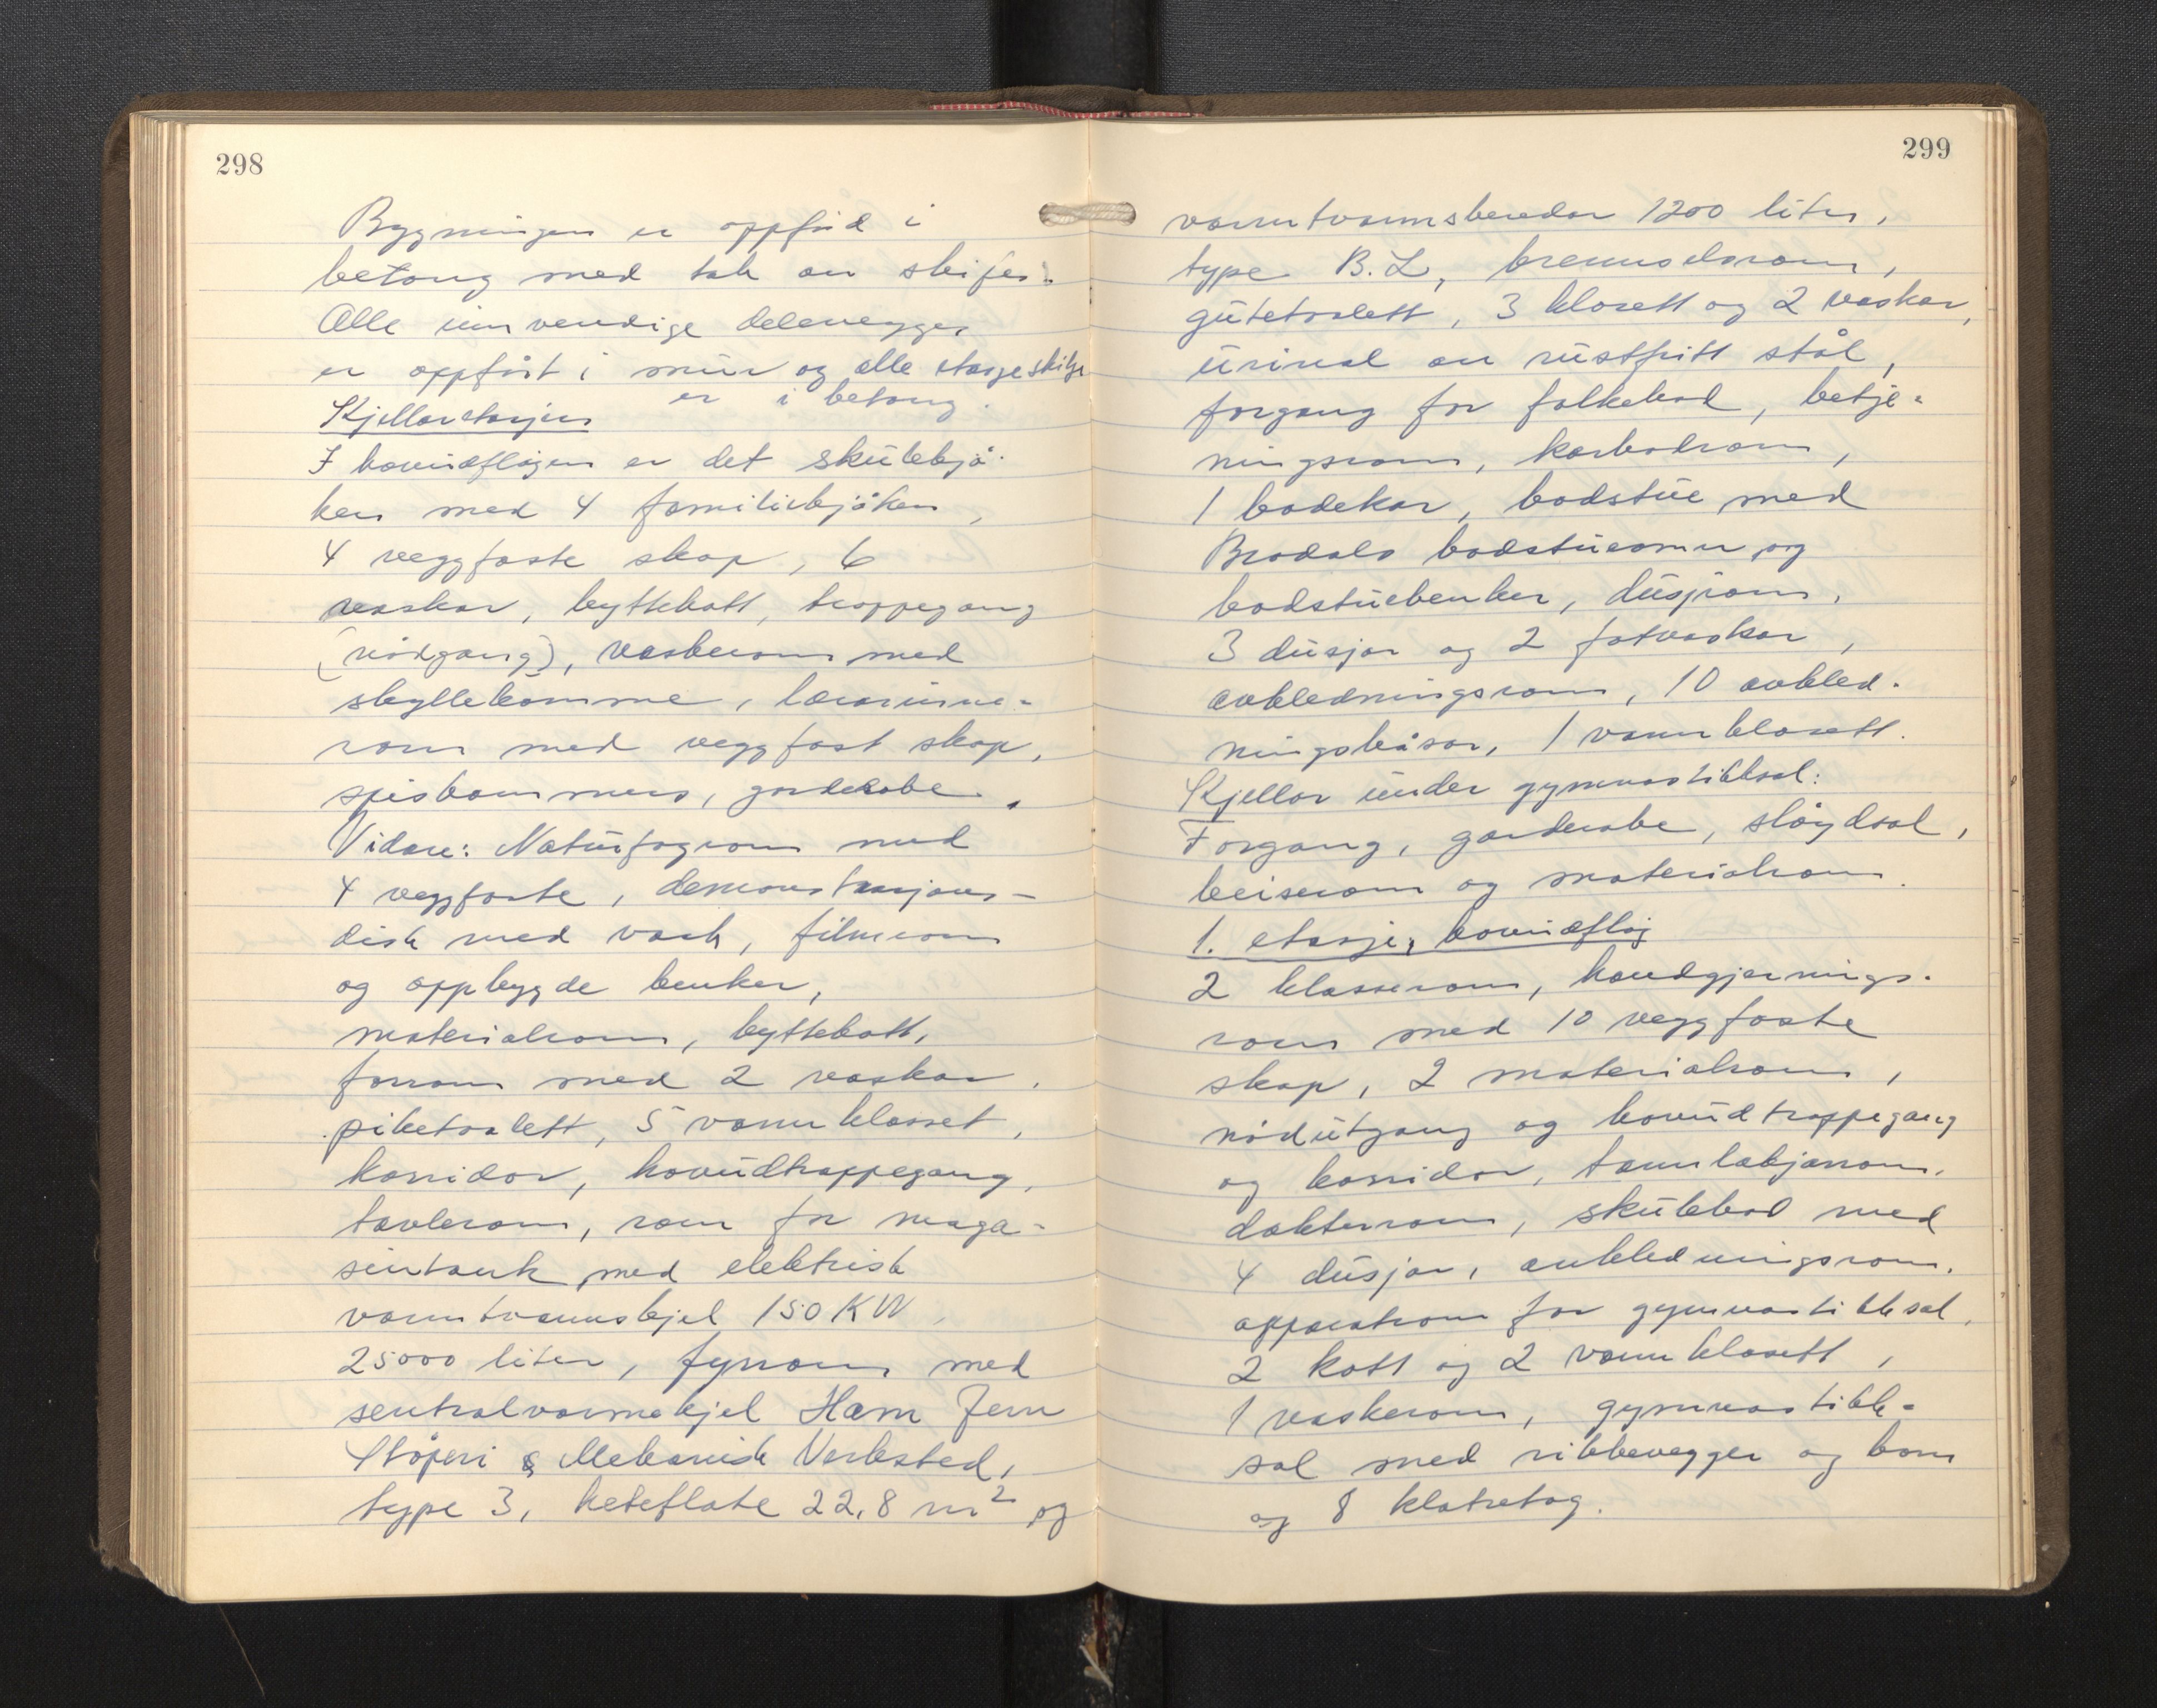 298
Bygningen er oppførd i
betong med tak av skifer.
Alle innvendige delevegger
er oppført i mur og alle etasjeskilje
er i betong.
Kjelleretasjen
I hovudfløyen er det skulekjø-
ken med 4 familiekjøken,
4 veggfaste skap, 6
vaskar, byttekott, trappegang
(nødgang), vaskerom med
skyllekomme, lærarinne-
rom med veggfast skap,
spiskammers, garderobe.
Vidare: Naturfagrom med
4 veggfaste, demonstrasjons-
disk med vask, filmrom
og oppbygde benker,
materialrom, byttekott,
forrom med 2 vaskar,
piketoalett, 5 vannklosset,
korridor, hovudtrappegang,
tavlerom, rom for maga-
sintank med elektrisk
varmtvannskjel 150 KW,
25000 liter, fyrrom med
sentralvarmekjel Ham Jern
Støperi & Mekanisk Verksted,
type 3, heteflate 22,8 m² og
299
varmtvannsberedar 1200 liter,
type B.L, brennselsrom,
gutetoalett, 3 klosett og 2 vaskar,
urinal av rustfritt stål,
forgang for folkebad, betje-
ningsrom, karbadrom,
1 badekar, badstue med
Brodals badstueomn og
badstuebenker, dusjrom,
3 dusjar og 2 fotvaskar,
avkledningsrom, 10 avkled-
ningsbåsar, 1 vannklosett.
Kjellar under gymnastikksal:
Forgang, garderobe, sløydsal,
beiserom og materialrom.
1. etasje, hovudfløy
2 klasserom, handgjernings-
rom med 10 veggfaste
skap, 2 materialrom,
nødutgang og hovudtrappegang
og korridor, tannlækjarrom,
dokterrom, skulebad med
4 dusjar, avkledningsrom,
apparatrom for gymnastikksal,
2 kott og 2 vannklosett,
1 vaskerom, gymnastikk-
sal med ribbevegger og bom
og 8 klatretog.